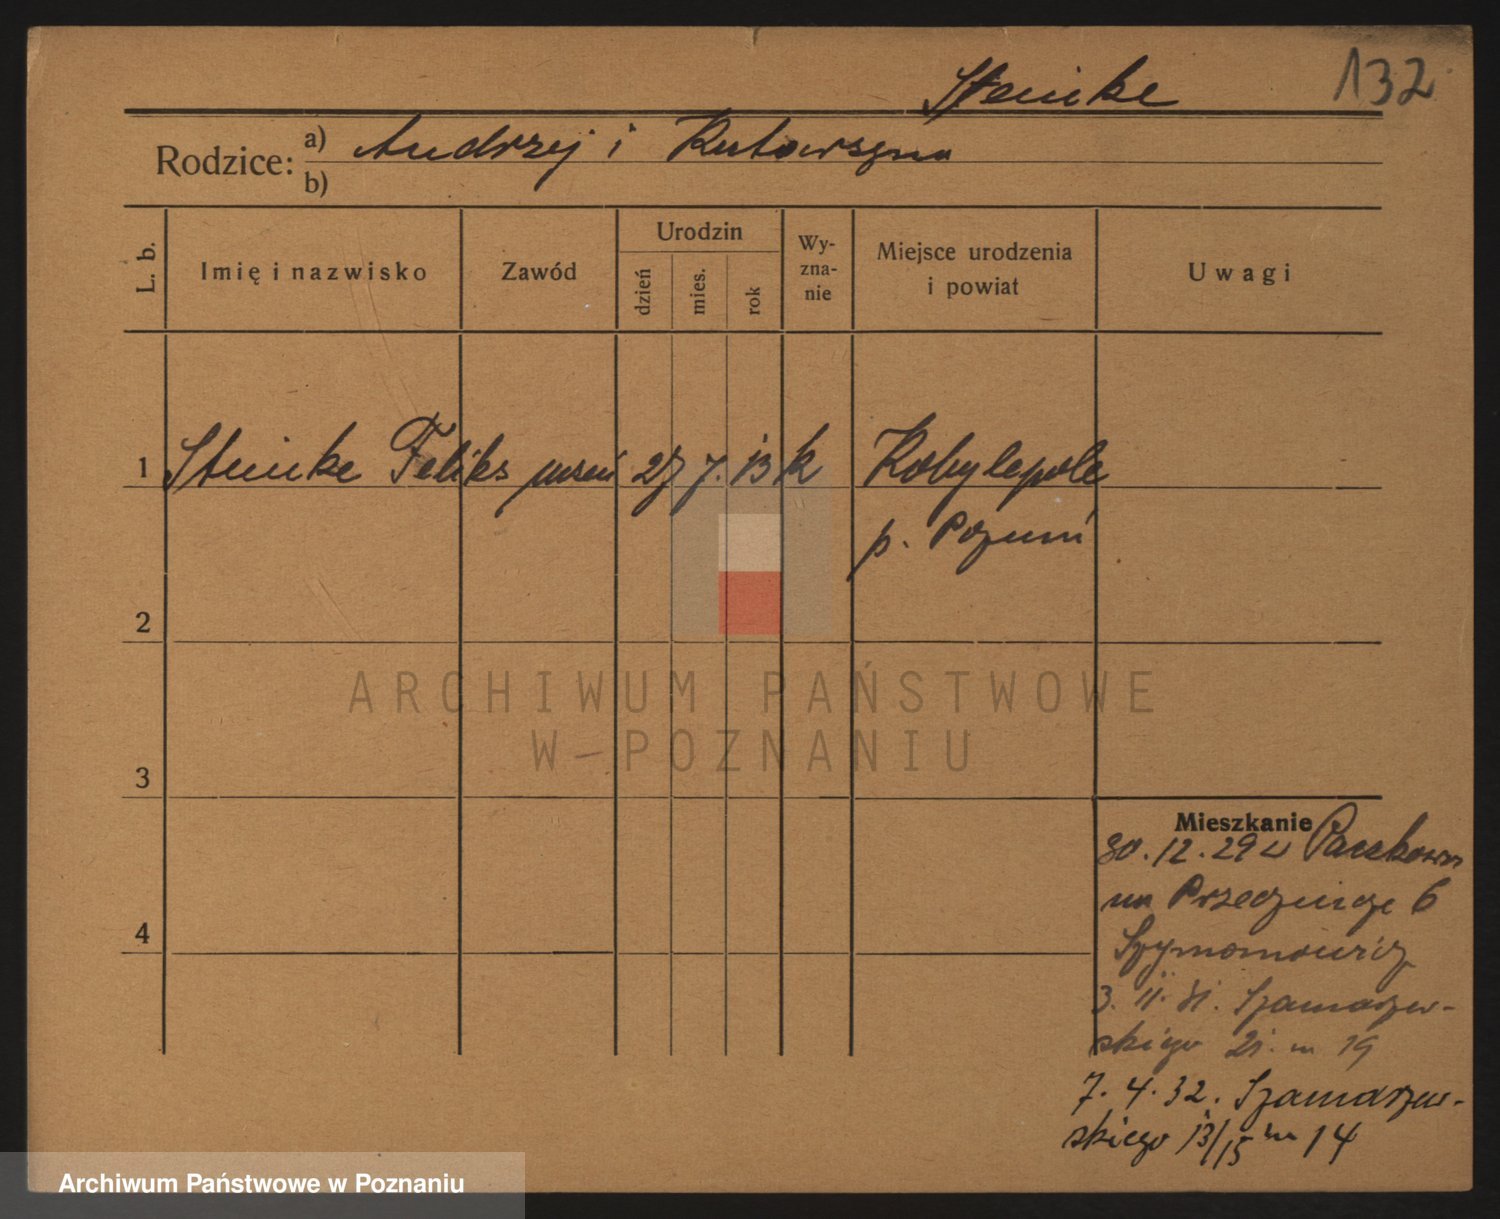 132
Steinke
Rodzice: a) Andrzej i Katarzyna
b)
L. b.
Imię i nazwisko
Zawód
Urodzin
dzień
mies.
rok
Wy-
zna-
nie
Miejsce urodzenia
i powiat
Uwagi
1 Steinke Feliks uczeń 27 7. 13 k Kobylepole
p. Poznań
2
ARCHIWUM PAŃSTWOWE
W POZNANIU
3
Mieszkanie
30.12.29 z Paczkowa
na Przecznicę 6
Szymonowicz
3. 11. 31. Szamarzew-
skiego 21. m 19
4
7. 4. 32. Szamarzew-
skiego 13/15 m 14
Archiwum Państwowe w Poznaniu